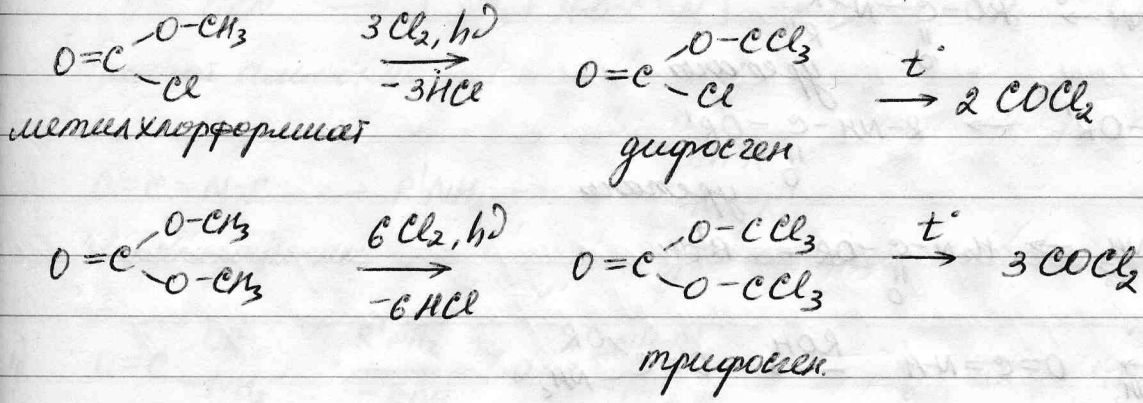 O=C O-CH₃ Cl 3Cl₂, hν → -3HCl O=C O-CCl₃ Cl t° → 2 COCl₂
метилхлорформиат дифосген
O=C O-CH₃ O-CH₃ 6Cl₂, hν → -6HCl O=C O-CCl₃ O-CCl₃ t° → 3 COCl₂
трифосген.